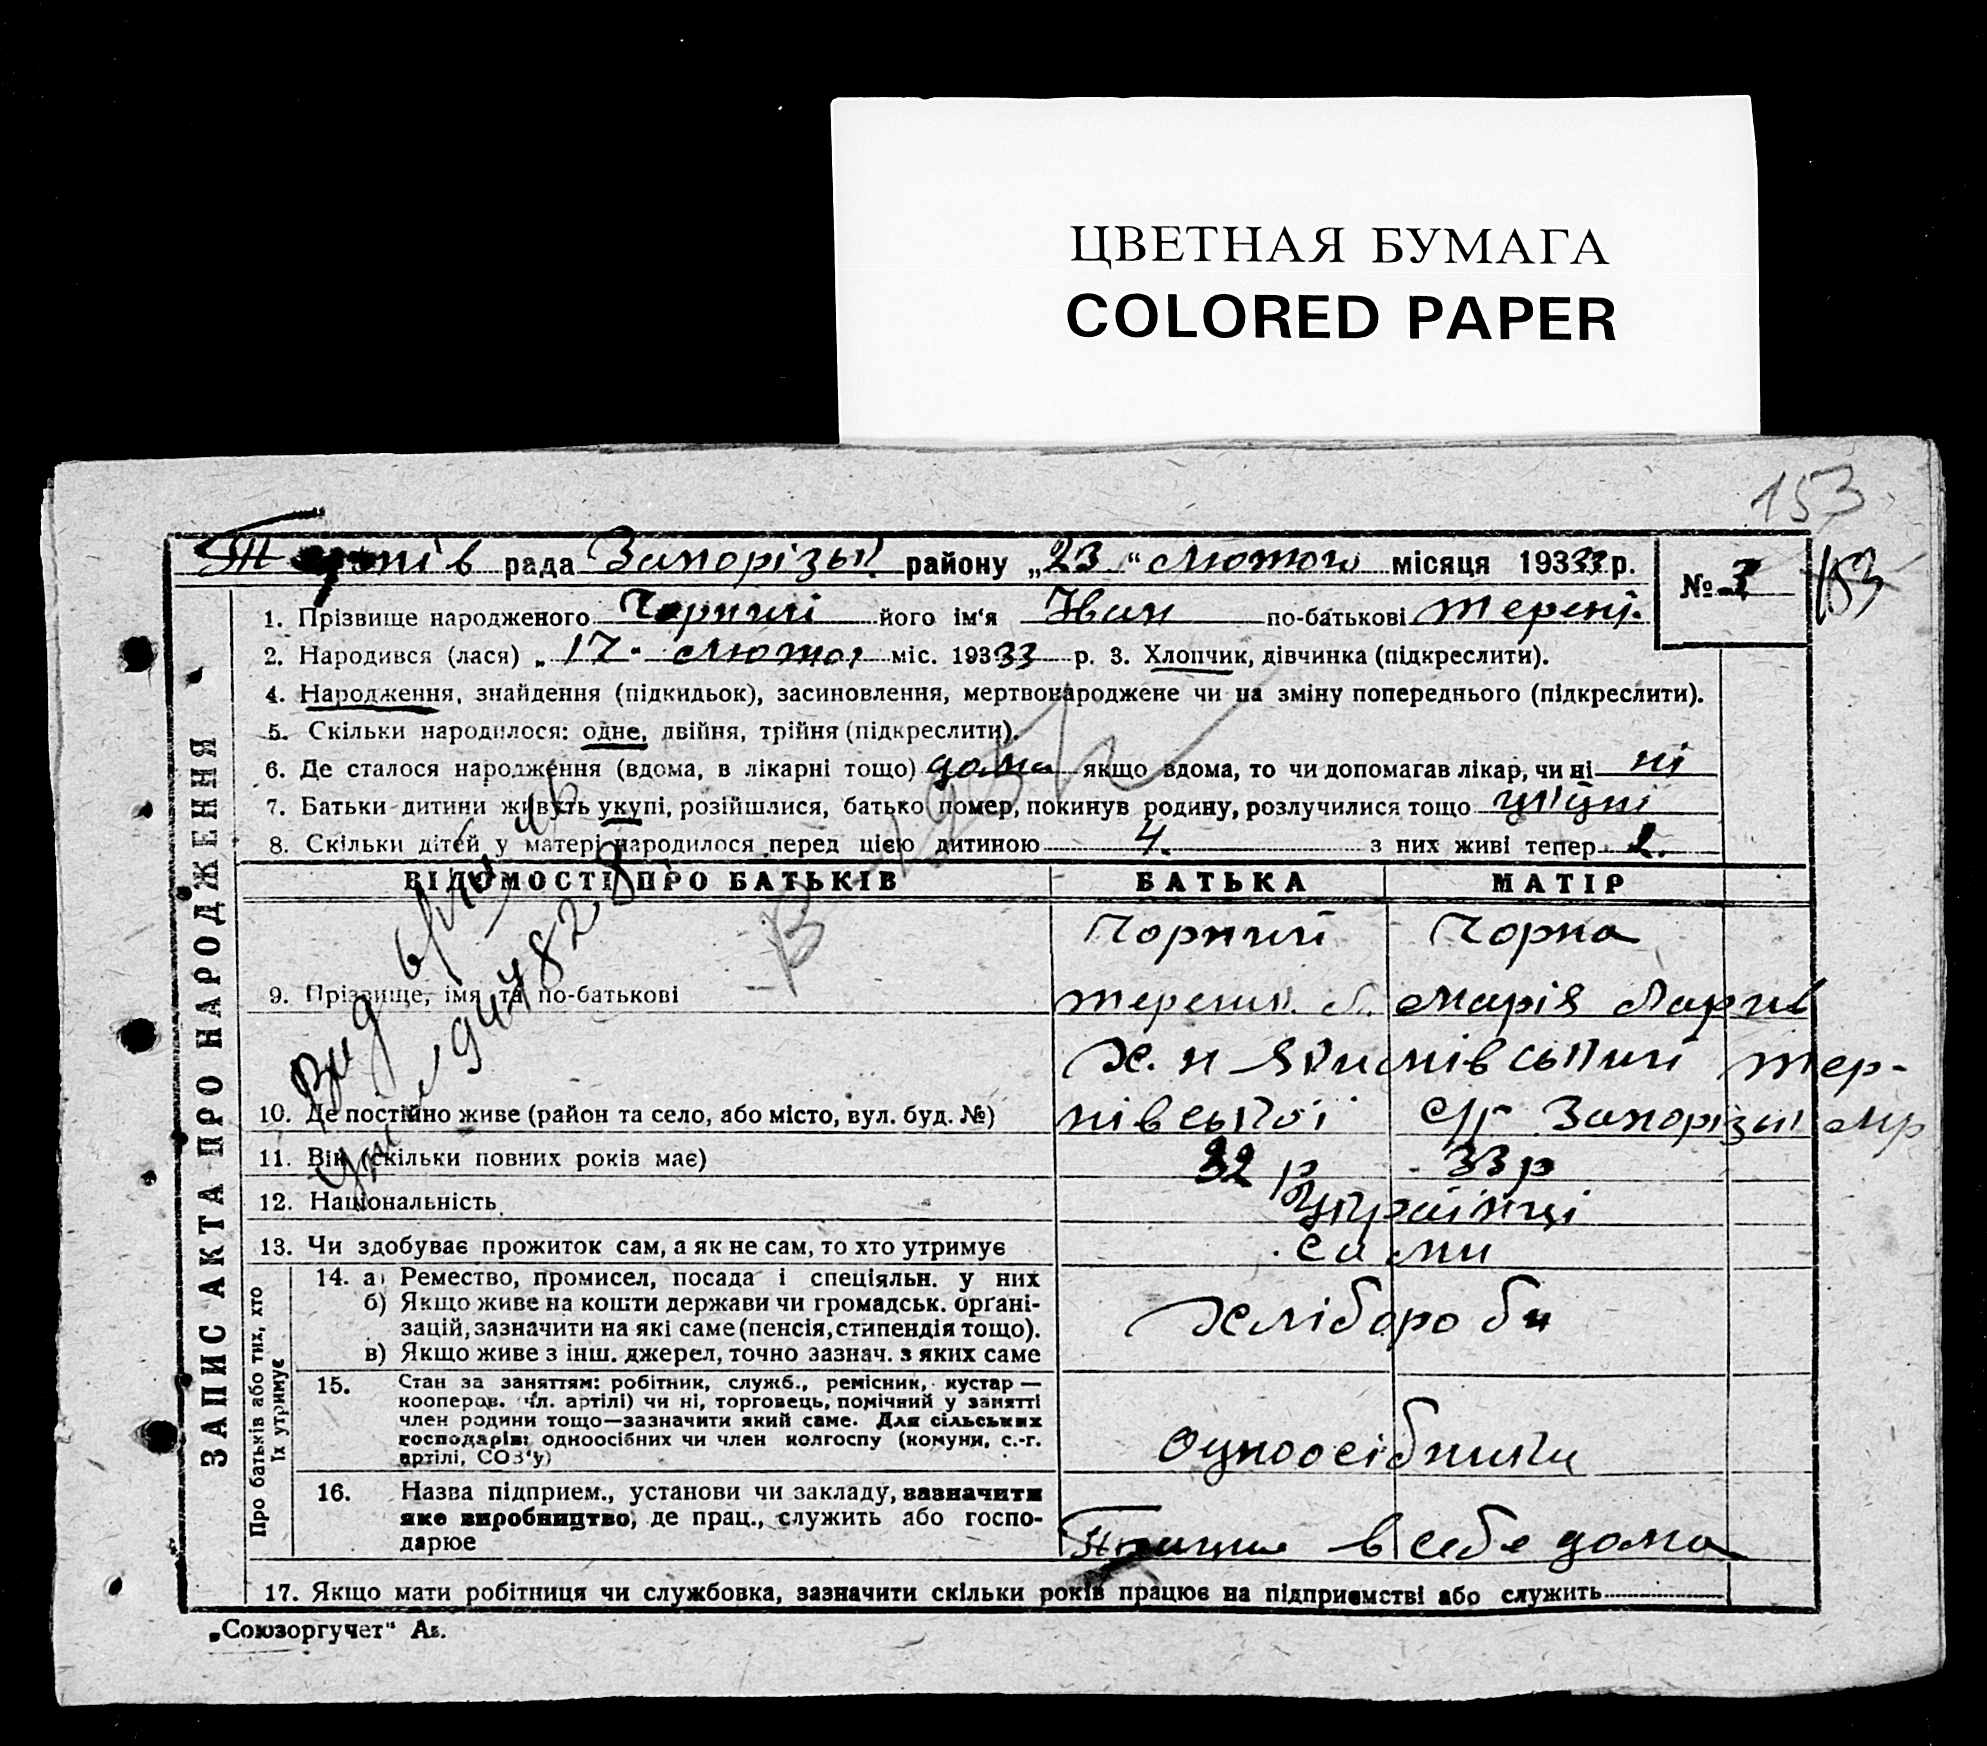 ЦВЕТНАЯ БУМАГА
COLORED PAPER
153
Терпів рада Запорізьк району „23“ лютого місяця 19333 р.
№ 3
153
1. Прізвище народженого Чорний його ім'я Иван по-батькові Терент.
2. Народився (лася) „17. лютого міс. 19333 р. 3. Хлопчик, дівчинка (підкреслити).
4. Народження, знайдення (підкидьок), засиновлення, мертвонароджене чи на зміну попереднього (підкреслити).
5. Скільки народилося: одне, двійня, трійня (підкреслити).
6. Де сталося народження (вдома, в лікарні тощо) дома якщо вдома, то чи допомагав лікар, чи ні ні
7. Батьки дитини живуть укупі, розійшлися, батько помер, покинув родину, розлучилися тощо
8. Скільки дітей у матері народилося перед цією дитиною 4. з них живі тепер 2.
ВІДОМОСТІ ПРО БАТЬКІВ БАТЬКА МАТІР
Чорний Чорна
9. Прізвище, імя та по-батькові Марія
10. Де постійно живе (район та село, або місто, вул. буд. №) нівської с/р Запорізьк
11. Вік (скільки повних років має) 32 р 33 р
12. Національність Українці
13. Чи здобуває прожиток сам, а як не сам, то хто утримує сами
14. а) Ремество, промисел, посада і спеціяльн. у них
б) Якщо живе на кошти держави чи громадськ. органі-
зацій, зазначити на які саме (пенсія, стипендія тощо).
в) Якщо живе з інш. джерел, точно зазнач. з яких саме
Хлібороби
15. Стан за заняттям: робітник, служб., ремісник, кустар —
кооперов. (чл. артілі) чи ні, торговець, помічний у занятті
член родини тощо—зазначити який саме. Для сільських
господарів: одноосібних чи член колгоспу (комуни, с.-г.
артілі, СОЗ'у)
Одноосібники
16. Назва підприєм., установи чи закладу, зазначити
яке виробництво, де прац., служить або госпо-
дарює
в себе дома
17. Якщо мати робітниця чи службовка, зазначити скільки років працює на підприємстві або служить
Про батьків або тих, хто їх утримує
ЗАПИС АКТА ПРО НАРОДЖЕННЯ
„Союзоргучет“